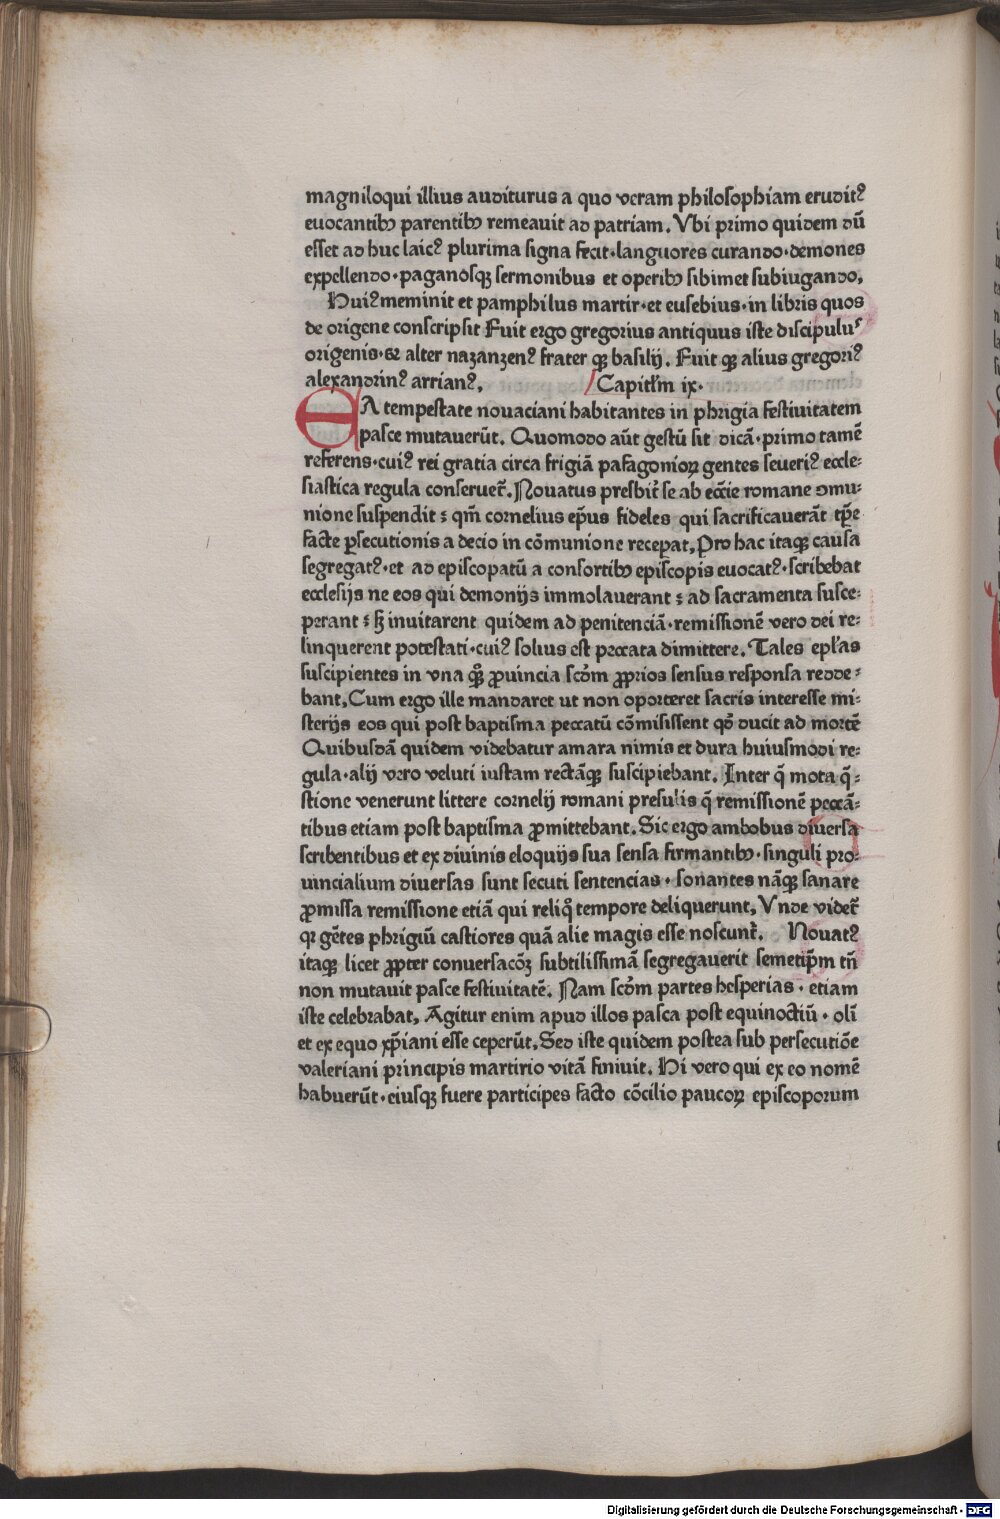 magniloqui illius auditurus a quo veram philosophiam eruditꝰ
euocantibꝫ parentibꝫ remeauit ad patriam. Vbi primo quidem dū
esset ad huc laicꝰ plurima signa fecit·languores curando·demones
expellendo·paganosqꝫ sermonibus et operibꝫ sibimet subiugando,
Huiꝰ meminit et pamphilus martir·et eusebius·in libris quos
de origene conscripsit Fuit ergo gregorius antiquus iste discipulus
origenis·et alter nazanzenꝰ frater qꝫ basilij. Fuit qꝫ alius gregoriꝰ
alexandrinꝰ arrianꝰ, Capitl̄m ix·
EA tempestate nouaciani habitantes in phrigia festiuitatem
pasce mutauerūt. Quomodo aūt gestū sit dicā·primo tamē
referens·cuiꝰ rei gratia circa frigiā pafagonioꝝ gentes seueriꝰ eccle⸗
siastica regula conseruet̄. Nouatus presbit̄ se ab ecc̄ie romane ꝯmu⸗
nione suspendit ꝫ qm̄ cornelius ep̄us fideles qui sacrificauerāt tp̄e
facte ꝑsecutionis a decio in cōmunione recepat, Pro hac itaqꝫ causa
segregatꝰ·et ad episcopatū a consortibꝫ episcopis euocatꝰ·scribebat
ecclesijs ne eos qui demonijs immolauerant ꝫ ad sacramenta susce⸗
perant ꝫ sꝫ inuitarent quidem ad penitenciā·remissionē vero dei re⸗
linquerent potestati·cuiꝰ solius est peccata dimittere. Tales epl̄as
suscipientes in vna qꝫqꝫ ꝓuincia scd̄m ꝓprios sensus responsa redde⸗
bant, Cum ergo ille mandaret ut non oporteret sacris interesse mi⸗
sterijs eos qui post baptisma peccatū cōmisissent qd̄ ducit ad mortē
Quibusdā quidem videbatur amara nimis et dura huiusmodi re⸗
gula·alij vero veluti iustam rectāqꝫ suscipiebant. Inter q̄ mota q̄⸗
stione venerunt littere cornelij romani presulis q̄ remissionē peccā⸗
tibus etiam post baptisma ꝓmittebant. Sic ergo ambobus diuersa
scribentibus et ex diuinis eloquijs sua sensa firmantibꝫ·singuli pro⸗
uincialium diuersas sunt secuti sentencias·sonantes nāqꝫ sanare
ꝓmissa remissione etiā qui reliq̊ tempore deliquerunt, Vnde videt̄
qꝛ gētes phrigiū castiores quā alie magis esse noscunt̄. Nouatꝰ
itaqꝫ licet ꝓpter conuersacōꝫ subtilissimā segregauerit semetip̄m tn̄
non mutauit pasce festiuitatē. Nam scd̄m partes hesperias·etiam
iste celebrabat, Agitur enim apud illos pasca post equinoctiū·oli͂
et ex equo xp̄iani esse ceperūt, Sed iste quidem postea sub persecutiōe
valeriani principis martirio vitā finiuit. Hi vero qui ex eo nomē
habuerūt·eiusqꝫ fuere participes facto cōcilio paucoꝝ episcoporum
Digitalisierung gefördert durch die Deutsche Forschungsgemeinschaft - DFG